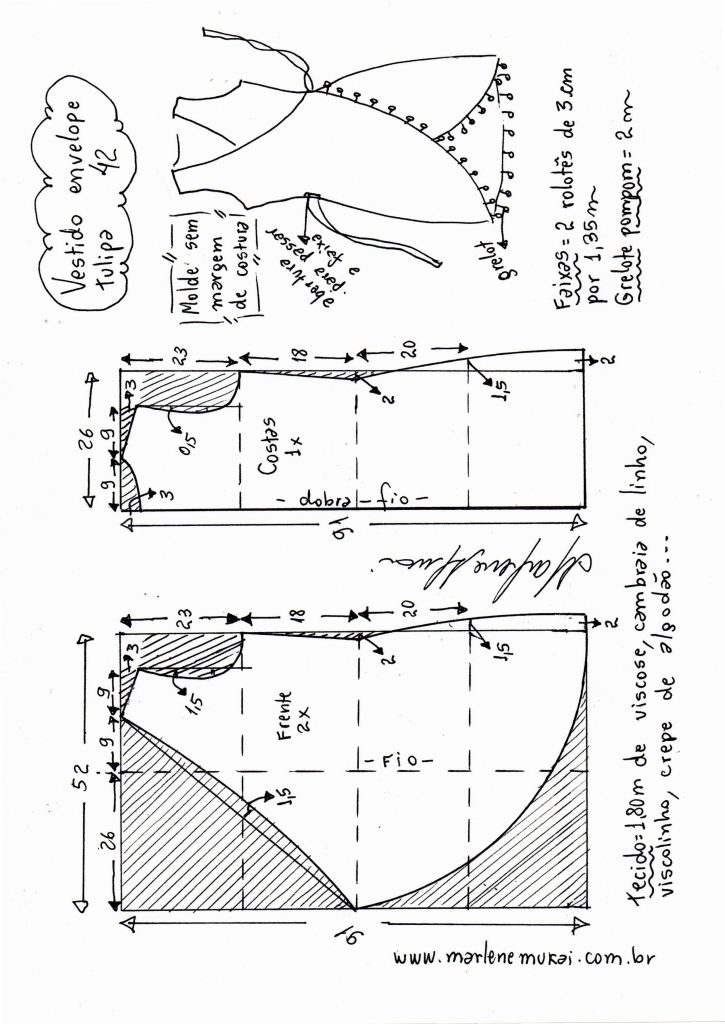 Vestido envelope
tulipa 42
"Molde sem
margem
de costura"
abertura
para passar
e faixa
grelot
Faixas = 2 rolotês de 3cm
por 1,35m
Grelote pompom = 2m
23
18
20
26
3
9
9
3
0,5
2
1,5
2
Costas
1x
- dobra -
- fio -
91
Marlene Mukai
23
18
20
52
3
9
9
26
1,5
2
1,5
2
Frente
2x
- Fio -
1,5
91
Tecido=1,80m de viscose, cambraia de linho,
viscolinho, crepe de algodão...
www.marlenemukai.com.br